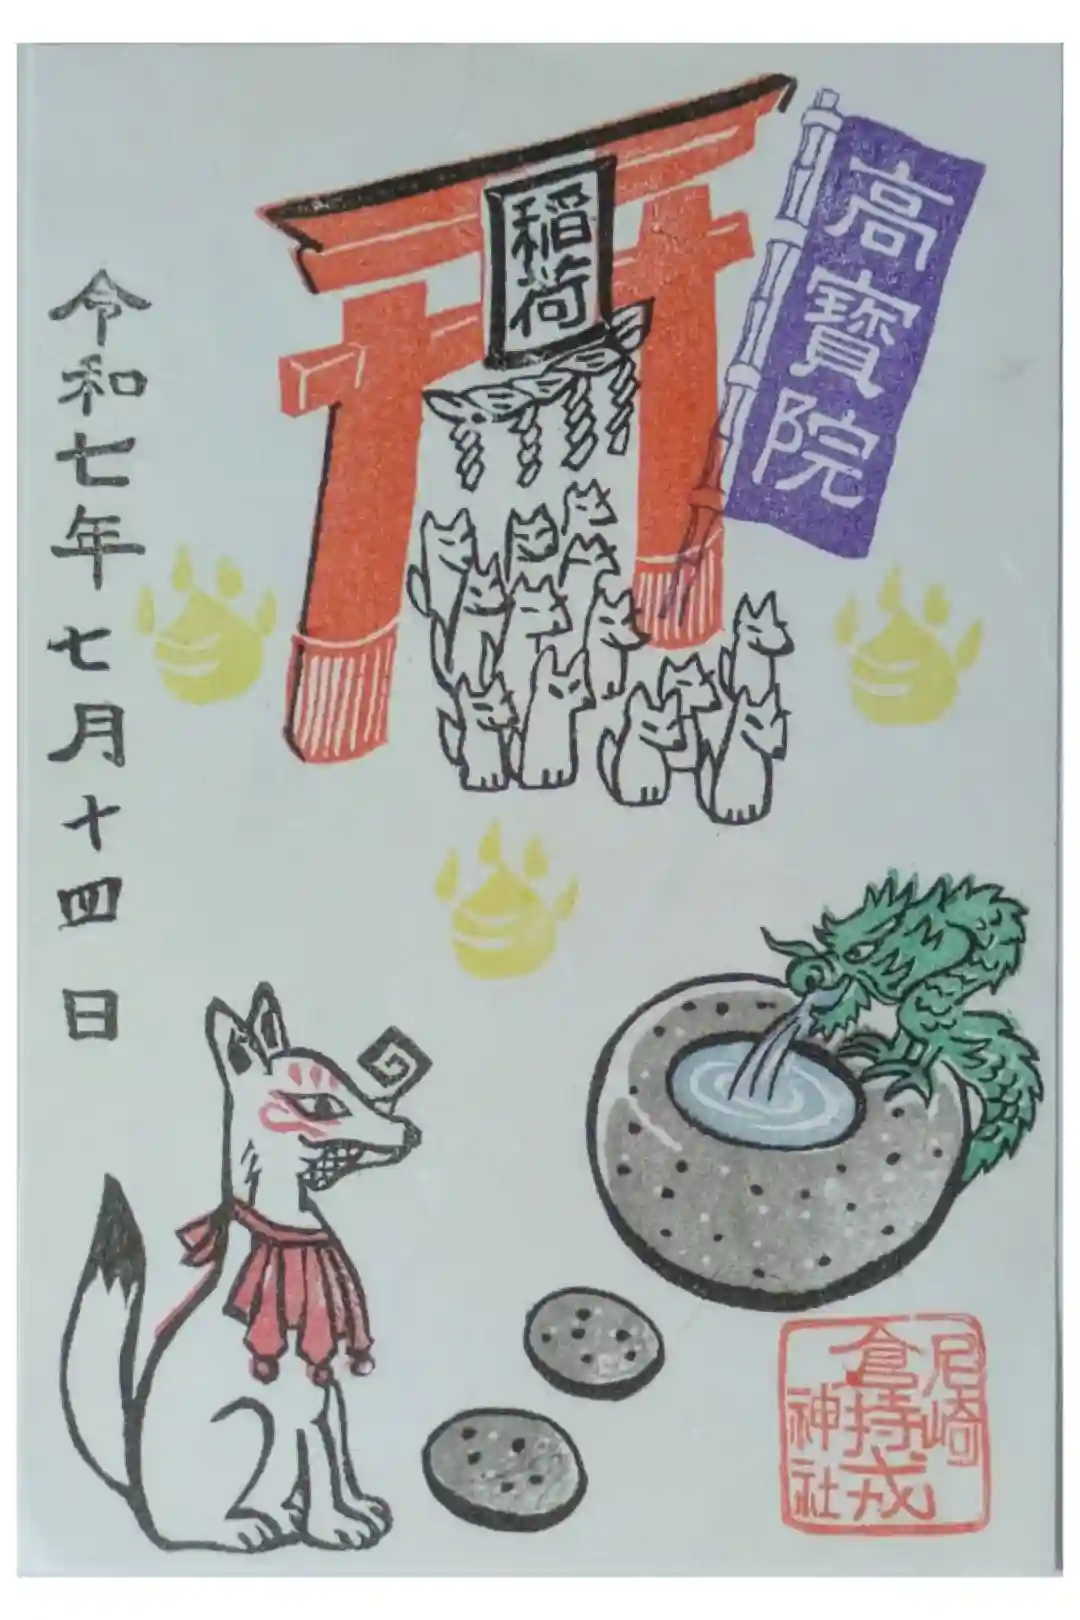 稲荷
高寳院
令和七年七月十四日
尼崎
倉持戎
神社